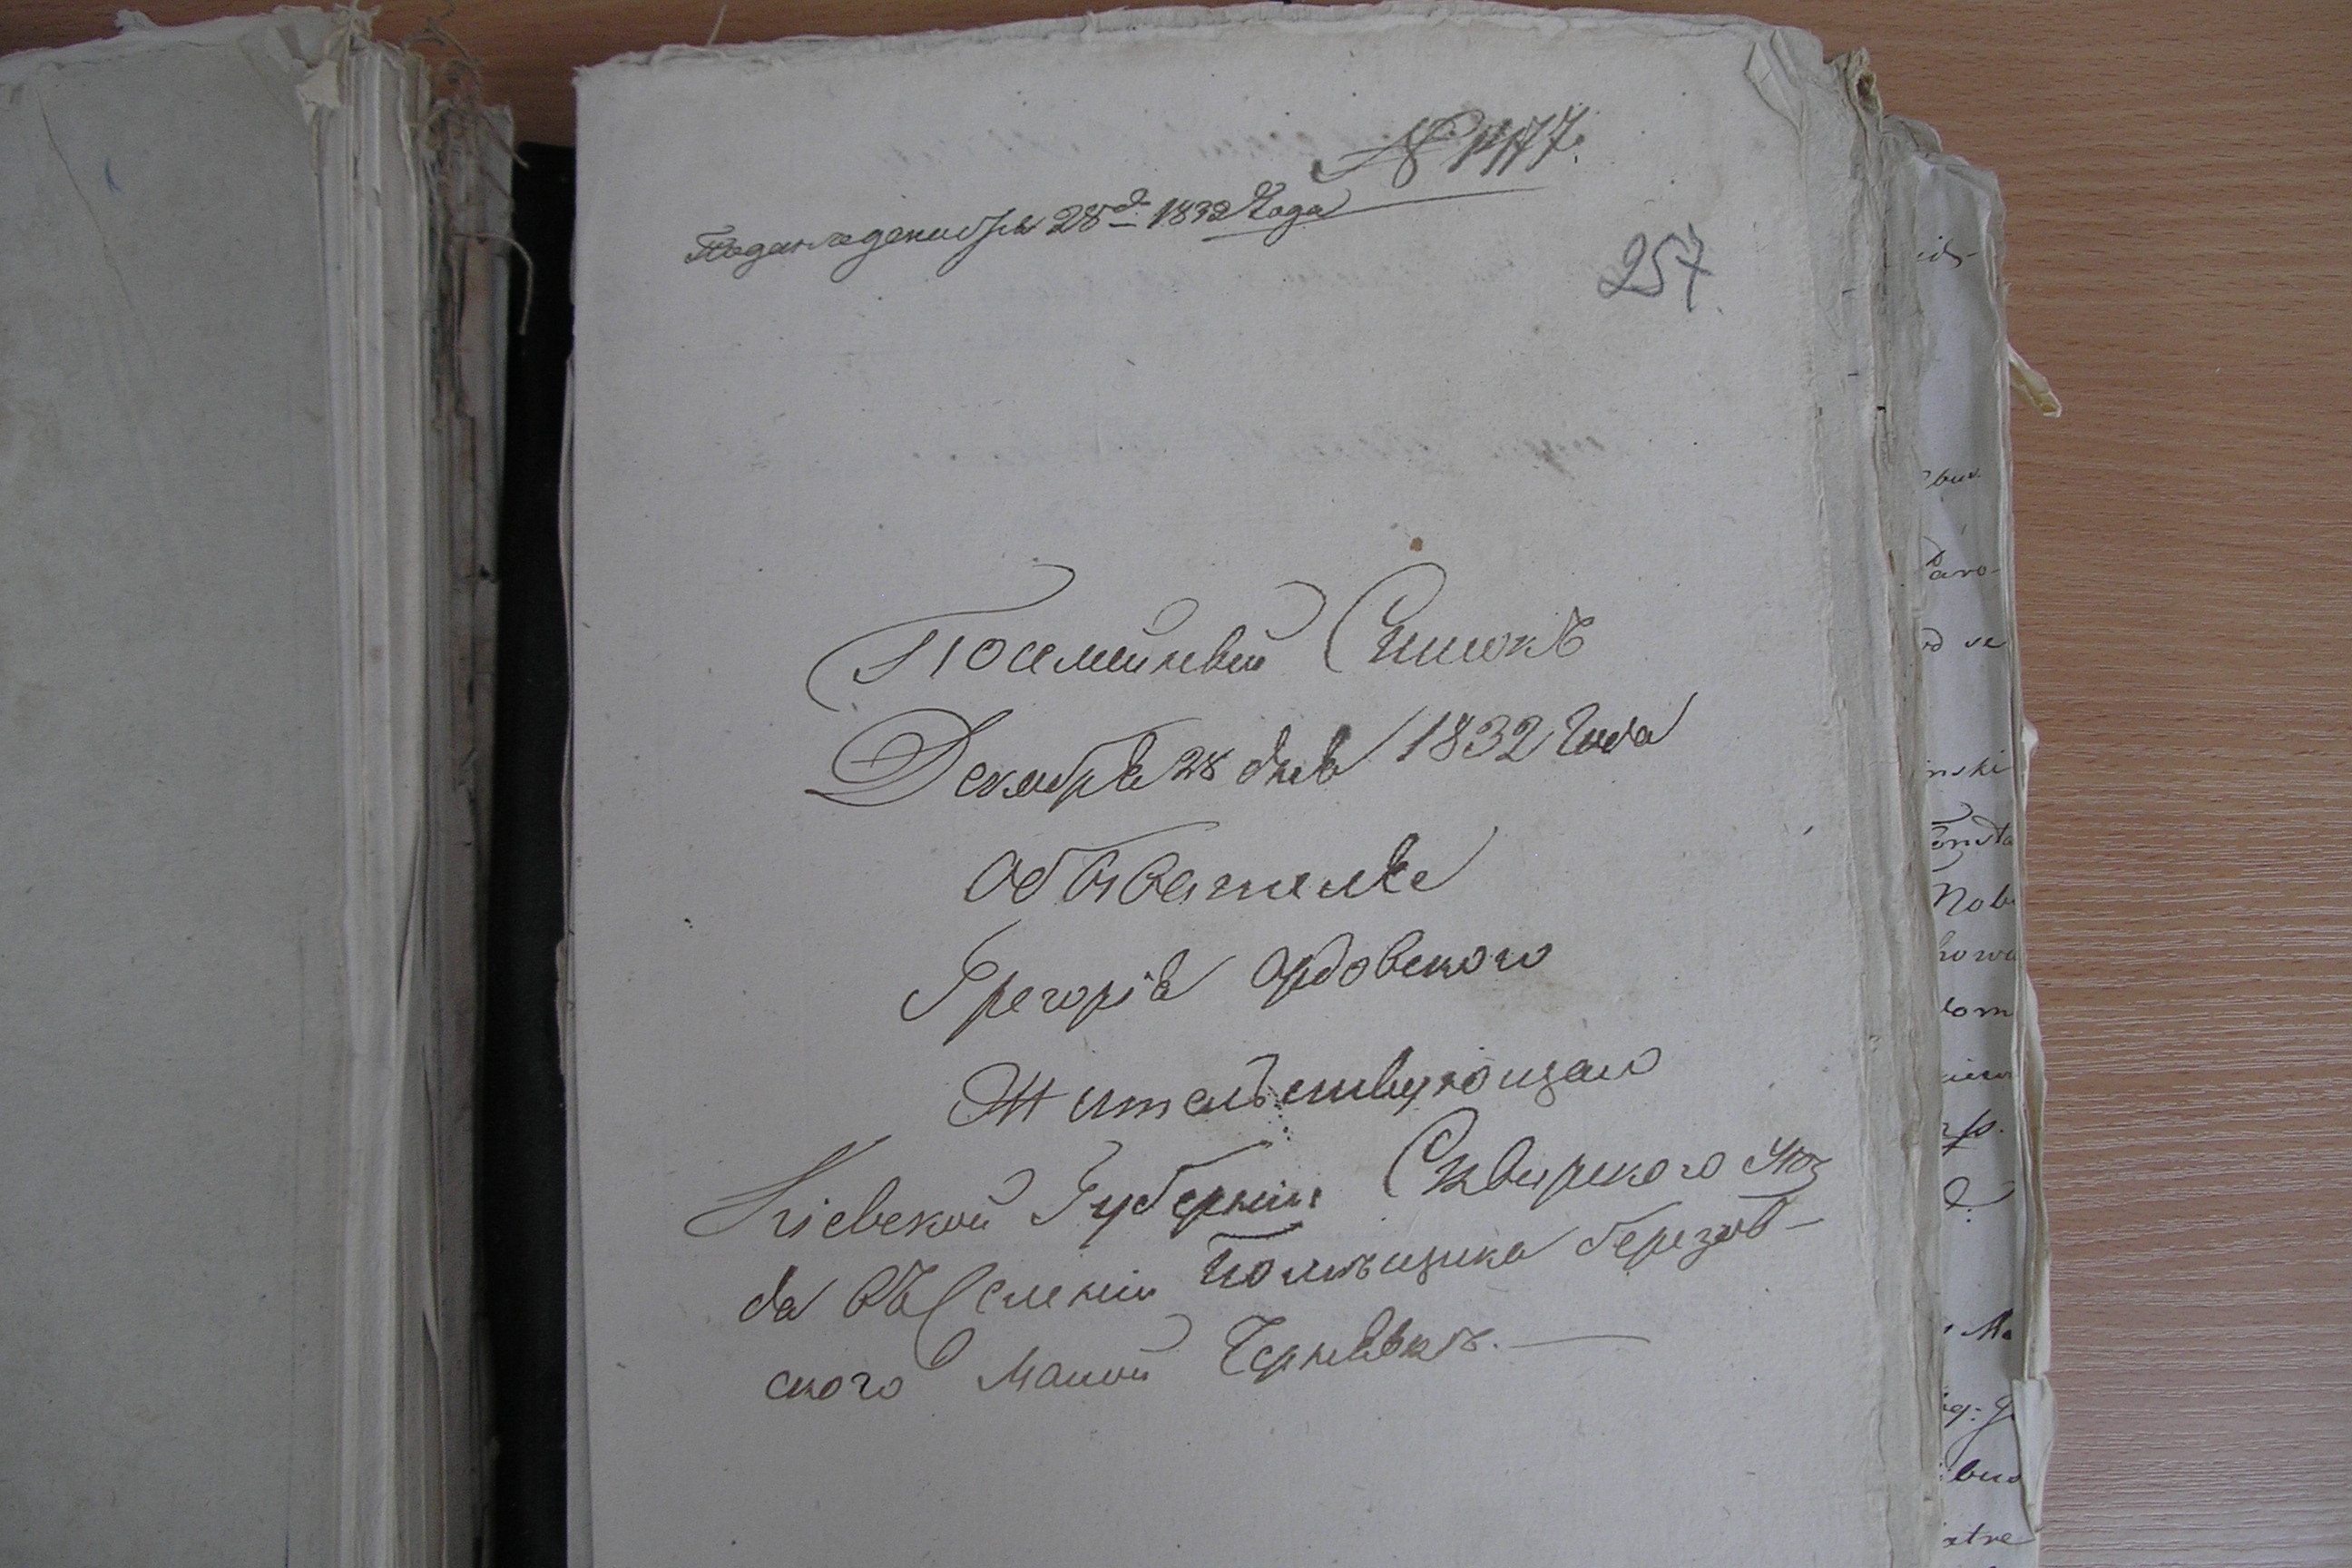 № 1477.
Подан декабря 28д. 1832 Года
257.
Посемейный Списокъ
Декабря 28 дня 1832 Года
Обывателя
Грегорія Ордовского
Жительствующаго
Кіевской Губерніи Сквирского Уѣз
да въ Селеніи Помѣщика Березов-
ского Малой Чернявкѣ.